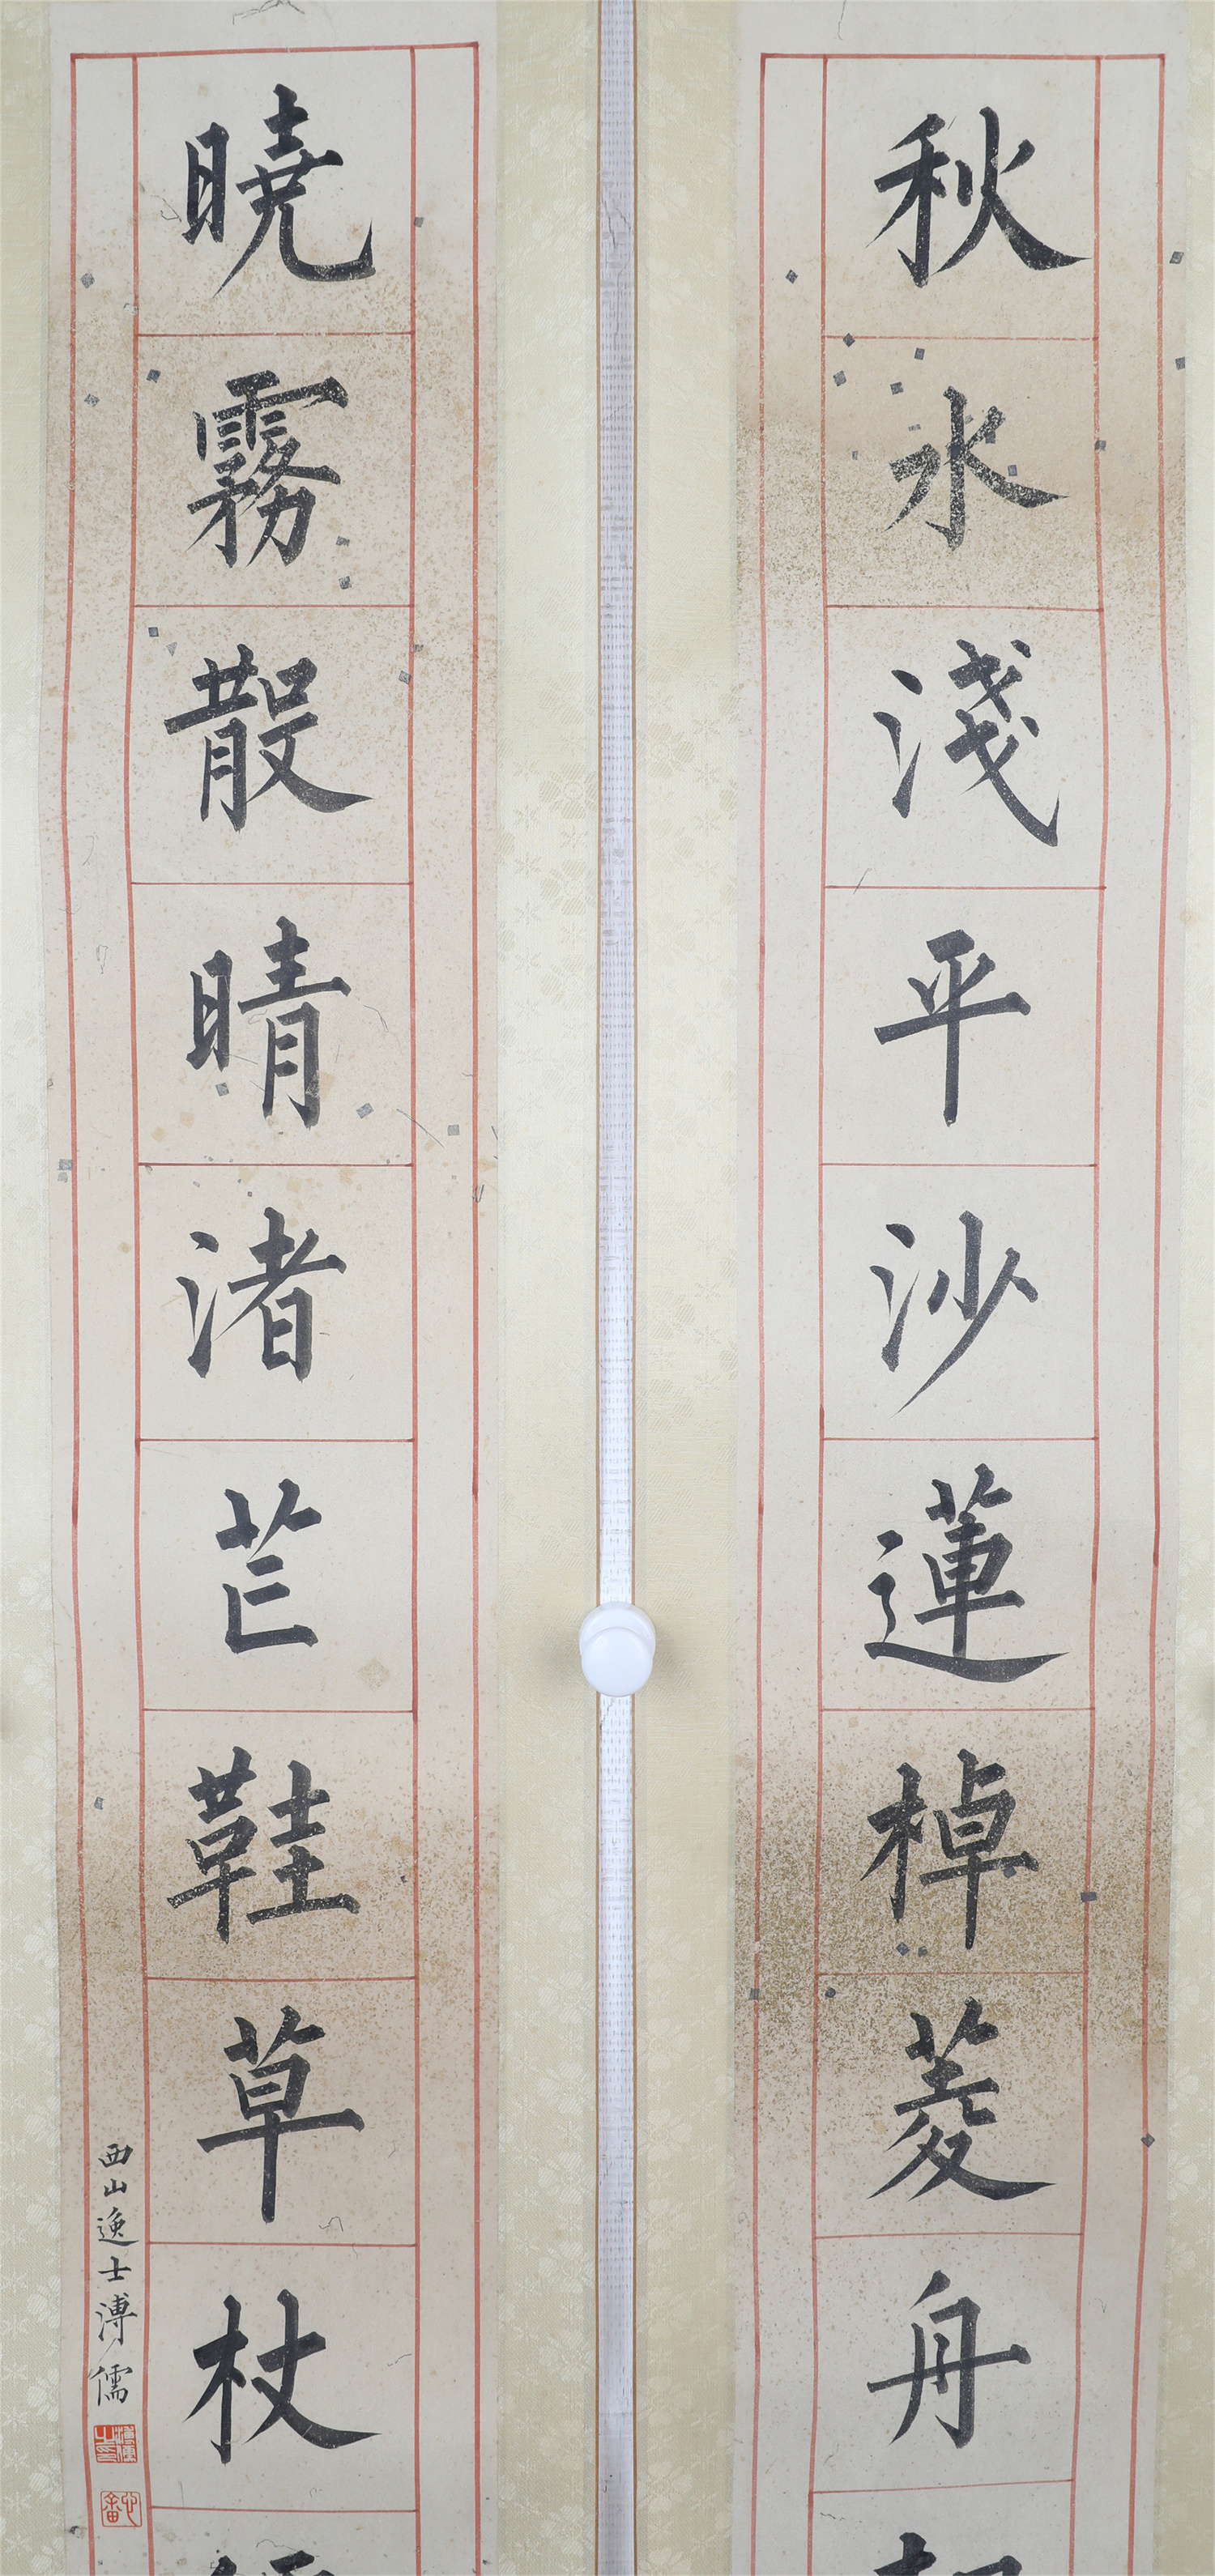 秋水淺平沙蓮棹菱舟
曉霧散晴渚芒鞋草杖
西山逸士溥儒